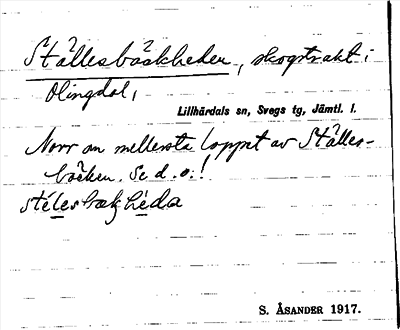 Ställesbäckheden, skogstrakt i
Olingdal,
Lillhärdals sn, Svegs tg, Jämtl. l.
Norr om mellersta loppet av Ställes-
bäcken. Se d. o.!
stélesbækheda
S. ÅSANDER 1917.